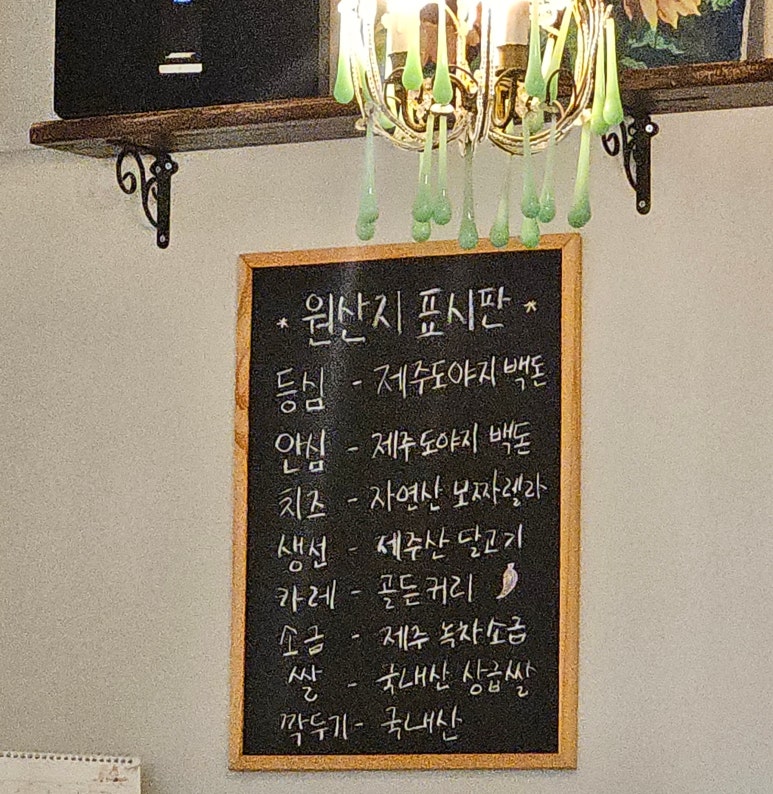 * 원산지 표시판 *
등심 - 제주도야지 백돈
안심 - 제주도야지 백돈
치즈 - 자연산 모짜렐라
생선 - 제주산 달고기
카레 - 골든커리
소금 - 제주 녹차소금
쌀 - 국내산 상급쌀
깍두기 - 국내산